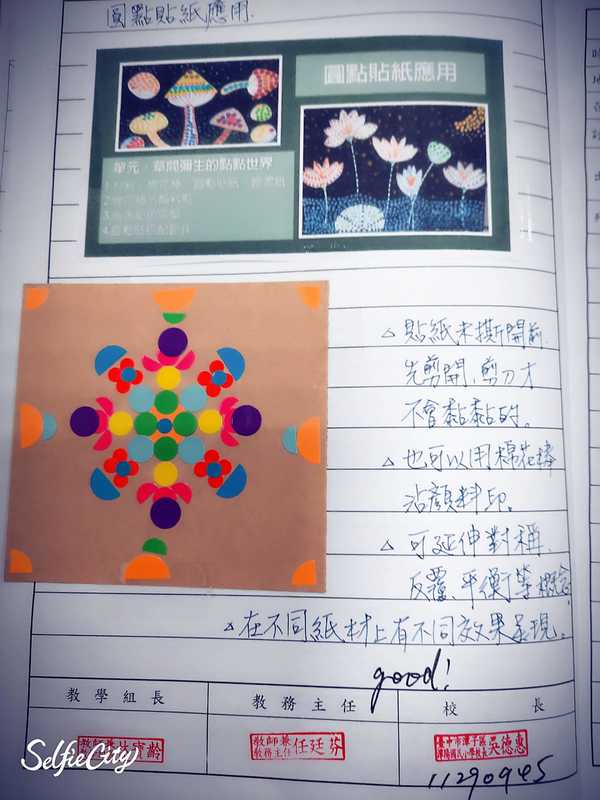 圓點貼紙應用.
圓點貼紙應用
單元：草間彌生的點點世界
△貼紙未撕開前.
先剪開,剪刀才
不會黏黏的。
△也可以用棉花棒
沾顏料印。
△可延伸對稱.
反覆、平衡等概念
△在不同紙材上有不同效果呈現。
good!
教學組長
教務主任
校長
教師兼
教務主任 任廷芬
臺中市潭子區
國民小學校長 吳德惠
SelfieCity